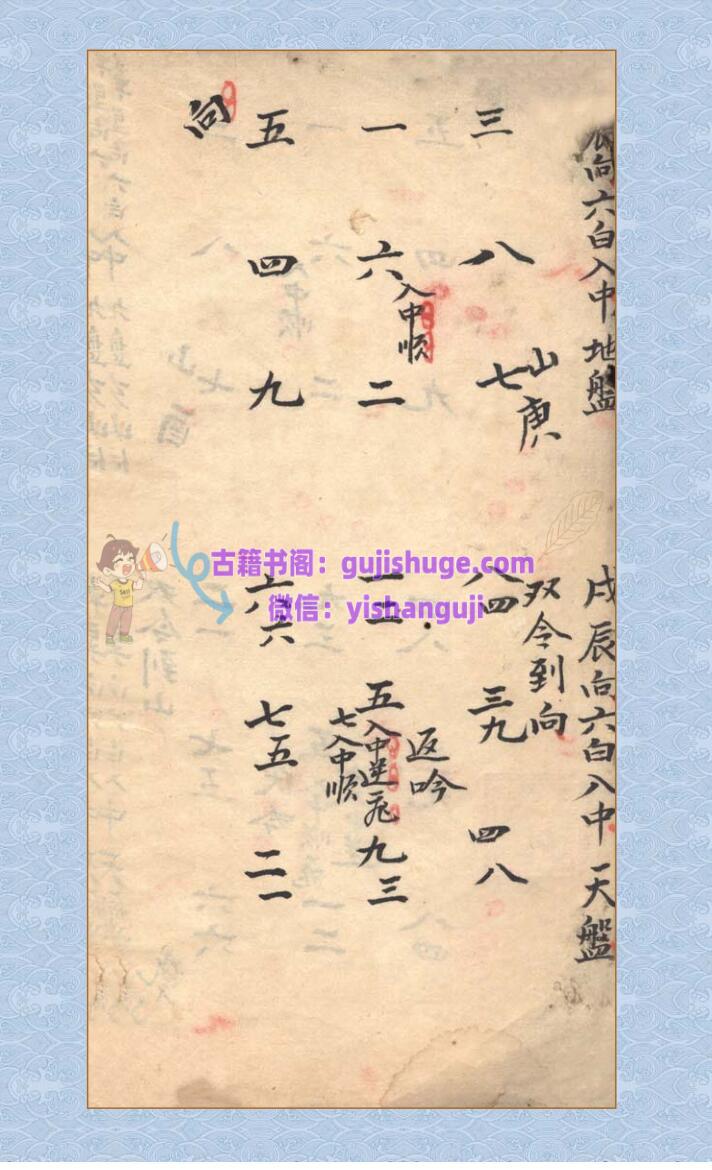 辰向六白入中地盤
山庚
三 八 七
一 六 二
入中順
五 四 九
向
戌辰向六白入中天盤
双令到向
八四 三九 四八
返吟
一二 五入中逆飛 九三
七入中順
六六 七五 二一
古籍书阁：gujishuge.com
微信：yishanguji